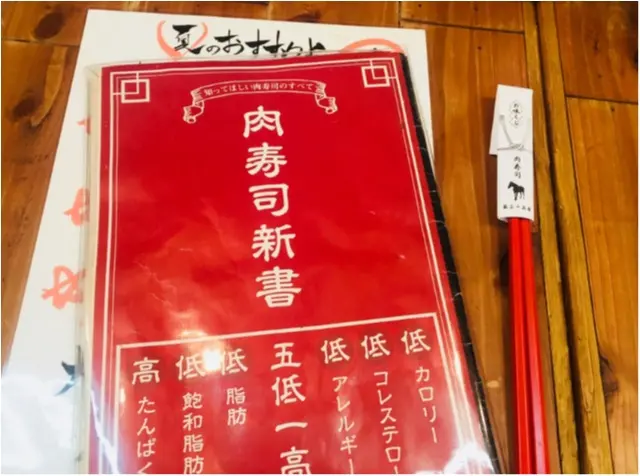 夏のおすすめ
知ってほしい肉寿司のすべて
肉寿司新書
低カロリー
低コレステロー
低アレルギー
五低一高
低脂肪
低飽和脂肪
高たんぱく
肉寿司